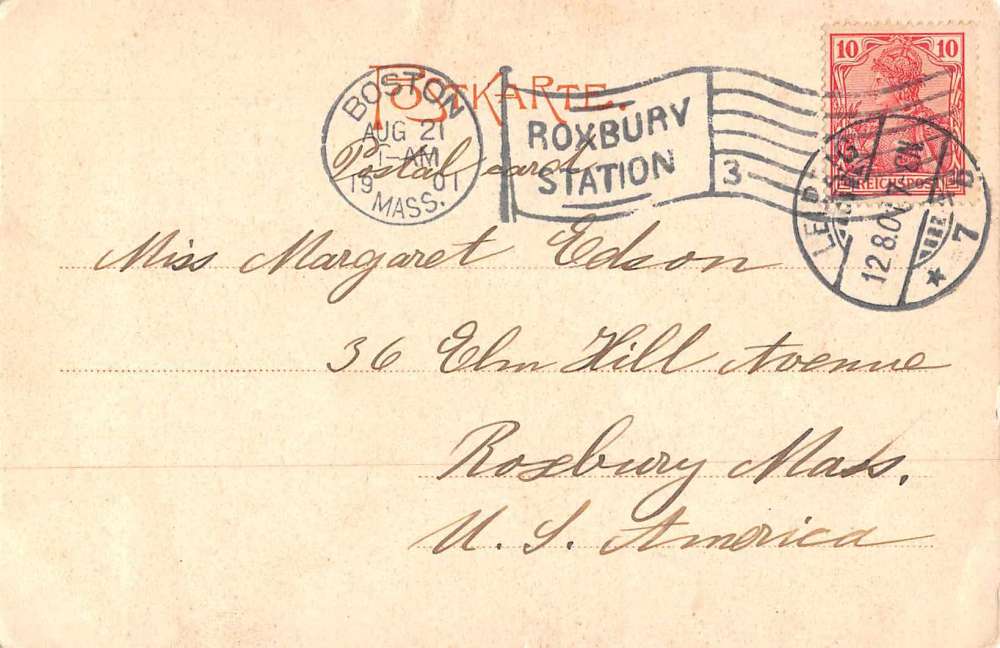 POSTKARTE.
10 10
REICHSPOST
BOSTON
AUG 21
1-AM
19 01
MASS.
ROXBURY
STATION
3
12.8.01
* 7
Postal card
Miss Margaret Edson
36 Elm Hill Avenue
Roxbury Mass.
U. S. America